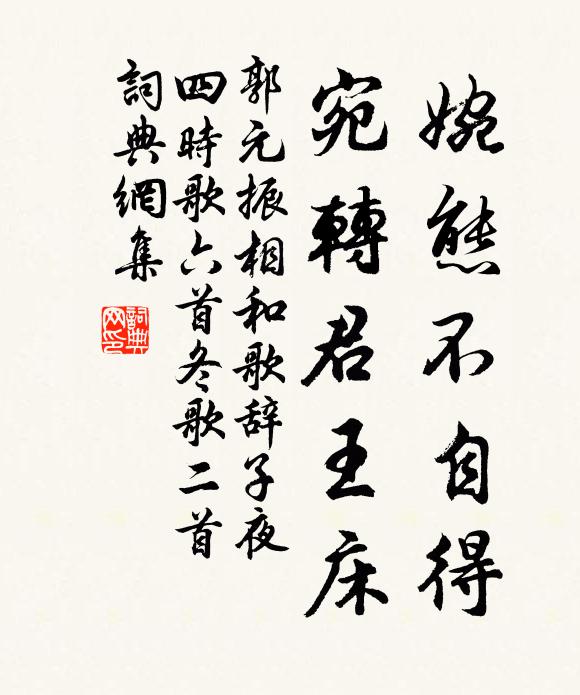 婉態不自得
宛轉君王床
郭元振相和歌辞子夜
四時歌六首冬歌二首
詞典網集
詞典
网印